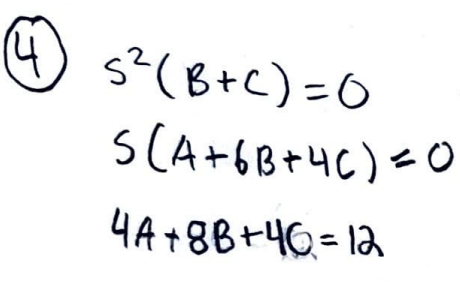 ④ S²(B+C)=0
S(A+6B+4C)=0
4A+8B+4C=12